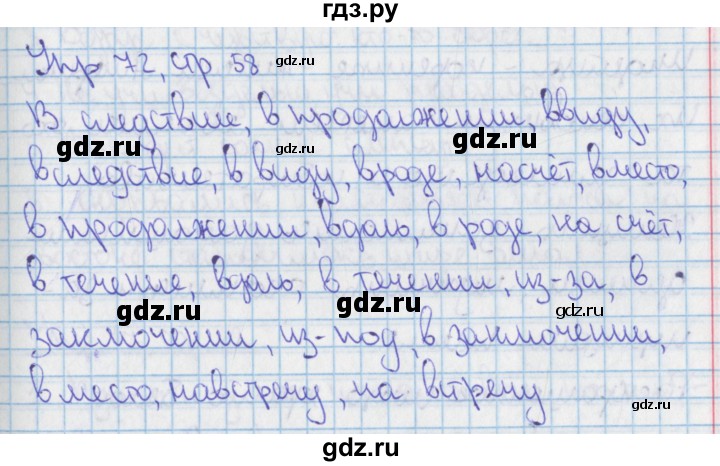 гдз.ру
Упр 72, стр 58 gdz.ru
В следствие, в продолжении, ввиду,
gdz.ru gdz.ru gdz.ru
вследствие, в виду, вроде, насчёт, вместо,
в продолжении, вдаль, в роде, на счёт,
gdz.ru gdz.ru
в течение, вдоль, в течении, из-за, в
gdz.ru gdz.ru gdz.ru
заключении, из-под, в заключении,
в место, навстречу, на встречу
gdz.ru gdz.ru
gdz.ru